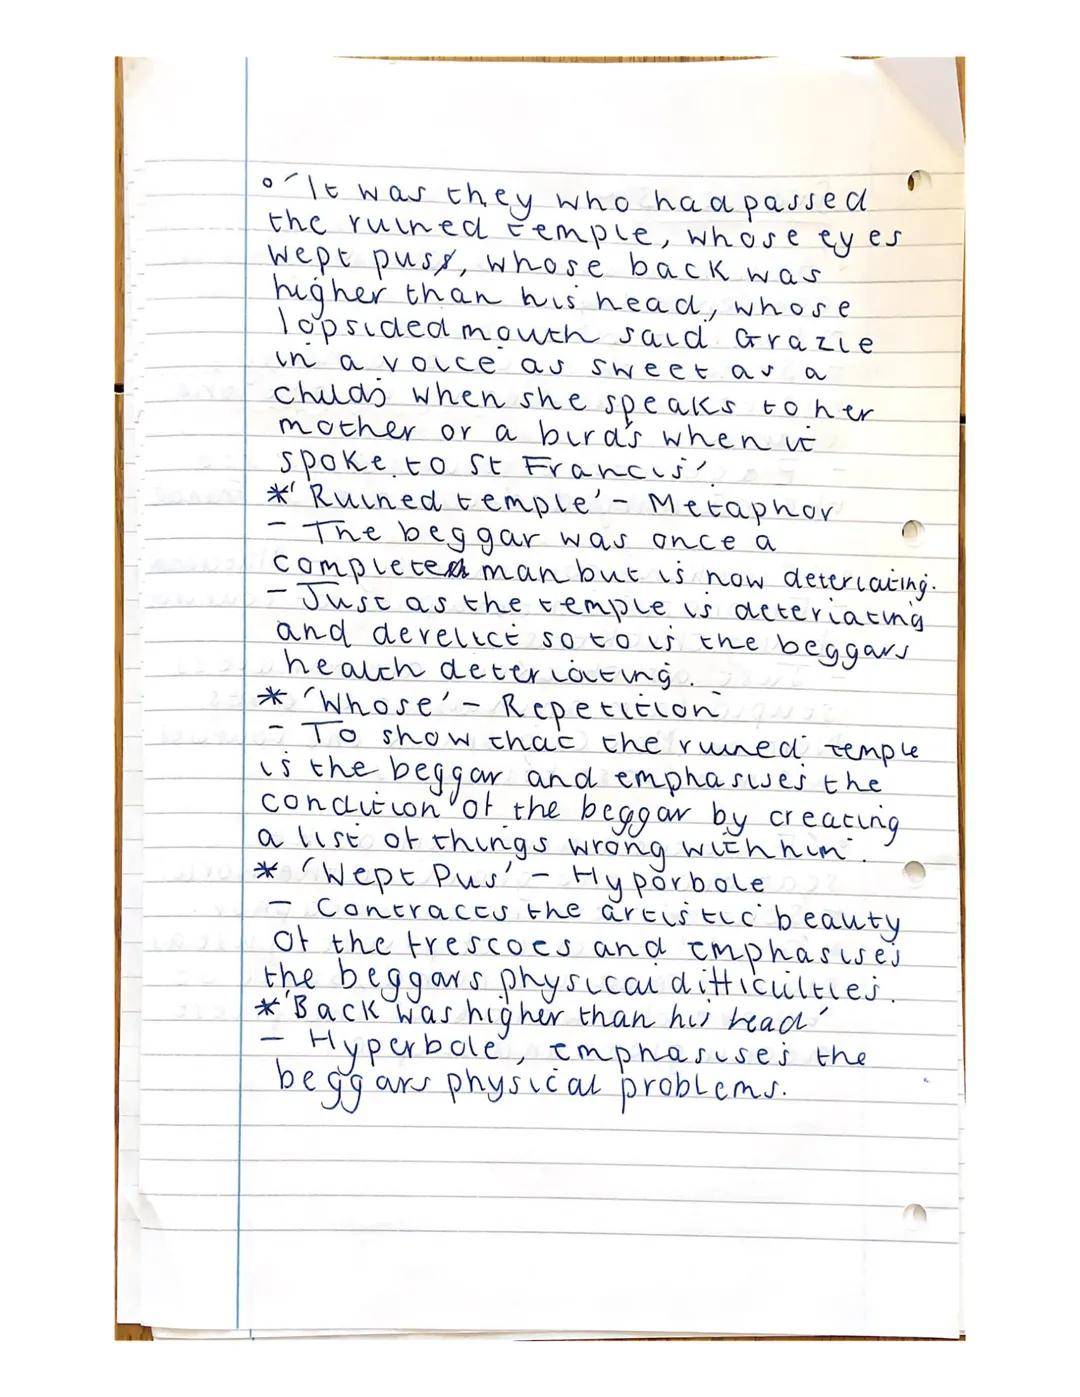 ° 'It was they who had passed
the ruined temple, whose eyes
wept pus, whose back was
higher than his head, whose
lopsided mouth said Grazie
in a voice as sweet as a
childs when she speaks to her
mother or a bird's when it
spoke to St Francis'
* 'Ruined temple' - Metaphor
- The beggar was once a
complete man but is now deteriating.
- Just as the temple is deteriating
and derelict so to is the beggars
health deteriating.
* 'Whose' - Repetition
- To show that the ruined temple
is the beggar and emphasises the
condition of the beggar by creating
a list of things wrong with him.
* 'Wept Pus' - Hyporbole
- Contracts the artistic beauty
of the frescoes and emphasises
the beggars physical difficulties.
* 'Back was higher than his head'
- Hyperbole, emphasises the
beggars physical problems.